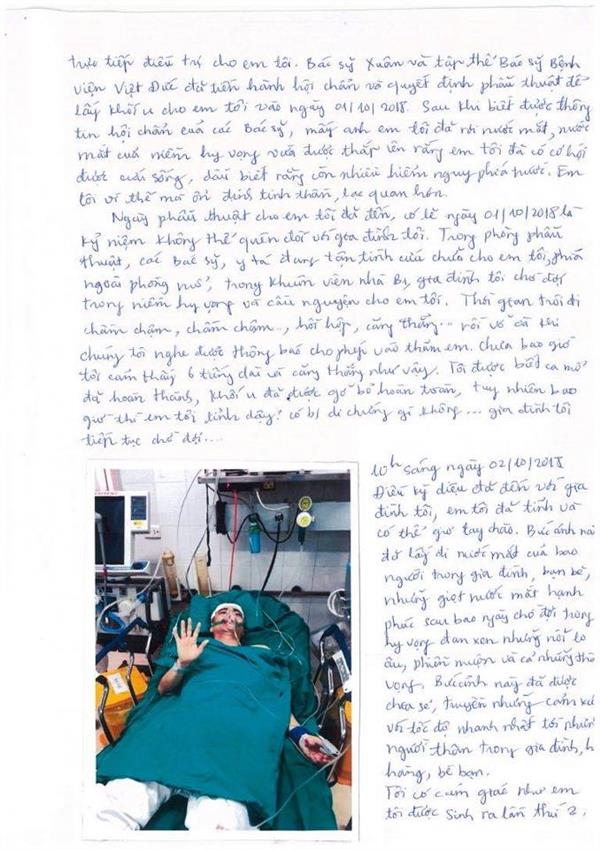 trực tiếp điều trị cho em tôi. Bác sỹ Xuân và tập thể Bác sỹ Bệnh
viện Việt Đức đã tiến hành hội chẩn và quyết định phẫu thuật để
lấy khối u cho em tôi vào ngày 01/10/2018. Sau khi biết được thông
tin hội chẩn của các Bác sỹ, mấy anh em tôi đã rơi nước mắt, nước
mắt của niềm hy vọng vừa được thắp lên rằng em tôi đã có cơ hội
được cứu sống, dẫu biết rằng còn nhiều hiểm nguy phía trước. Em
tôi vì thế mà ổn định tinh thần, lạc quan hơn.
Ngày phẫu thuật cho em tôi đã đến, có lẽ ngày 01/10/2018 là
kỷ niệm không thể quên đối với gia đình tôi. Trong phòng phẫu
thuật, các Bác sỹ, y tá đang tận tình cứu chữa cho em tôi, phía
ngoài phòng mổ, trong khuôn viên nhà B1, gia đình tôi chờ đợi
trong niềm hy vọng và cầu nguyện cho em tôi. Thời gian trôi đi
chầm chậm, chầm chậm..., hồi hộp, căng thẳng... rồi vỡ oà khi
chúng tôi nghe được thông báo cho phép vào thăm em. Chưa bao giờ
tôi cảm thấy 6 tiếng dài và căng thẳng như vậy. Tôi được biết ca mổ
đã hoàn thành, khối u đã được gỡ bỏ hoàn toàn, tuy nhiên bao
giờ thì em tôi tỉnh dậy? có bị di chứng gì không... gia đình tôi
tiếp tục chờ đợi....
10h sáng ngày 02/10/2018
Điều kỳ diệu đã đến với gia
đình tôi, em tôi đã tỉnh và
có thể giơ tay chào. Bức ảnh này
đã lấy đi nước mắt của bao
người trong gia đình, bạn bè,
những giọt nước mắt hạnh
phúc sau bao ngày chờ đợi trong
hy vọng đan xen những nỗi lo
âu, phiền muộn và cả những thất
vọng. Bức ảnh này đã được
chia sẻ, truyền những cảm xúc
với tốc độ nhanh nhất tới những
người thân trong gia đình, h
hàng, bè bạn.
Tôi có cảm giác như em
tôi được sinh ra lần thứ 2,